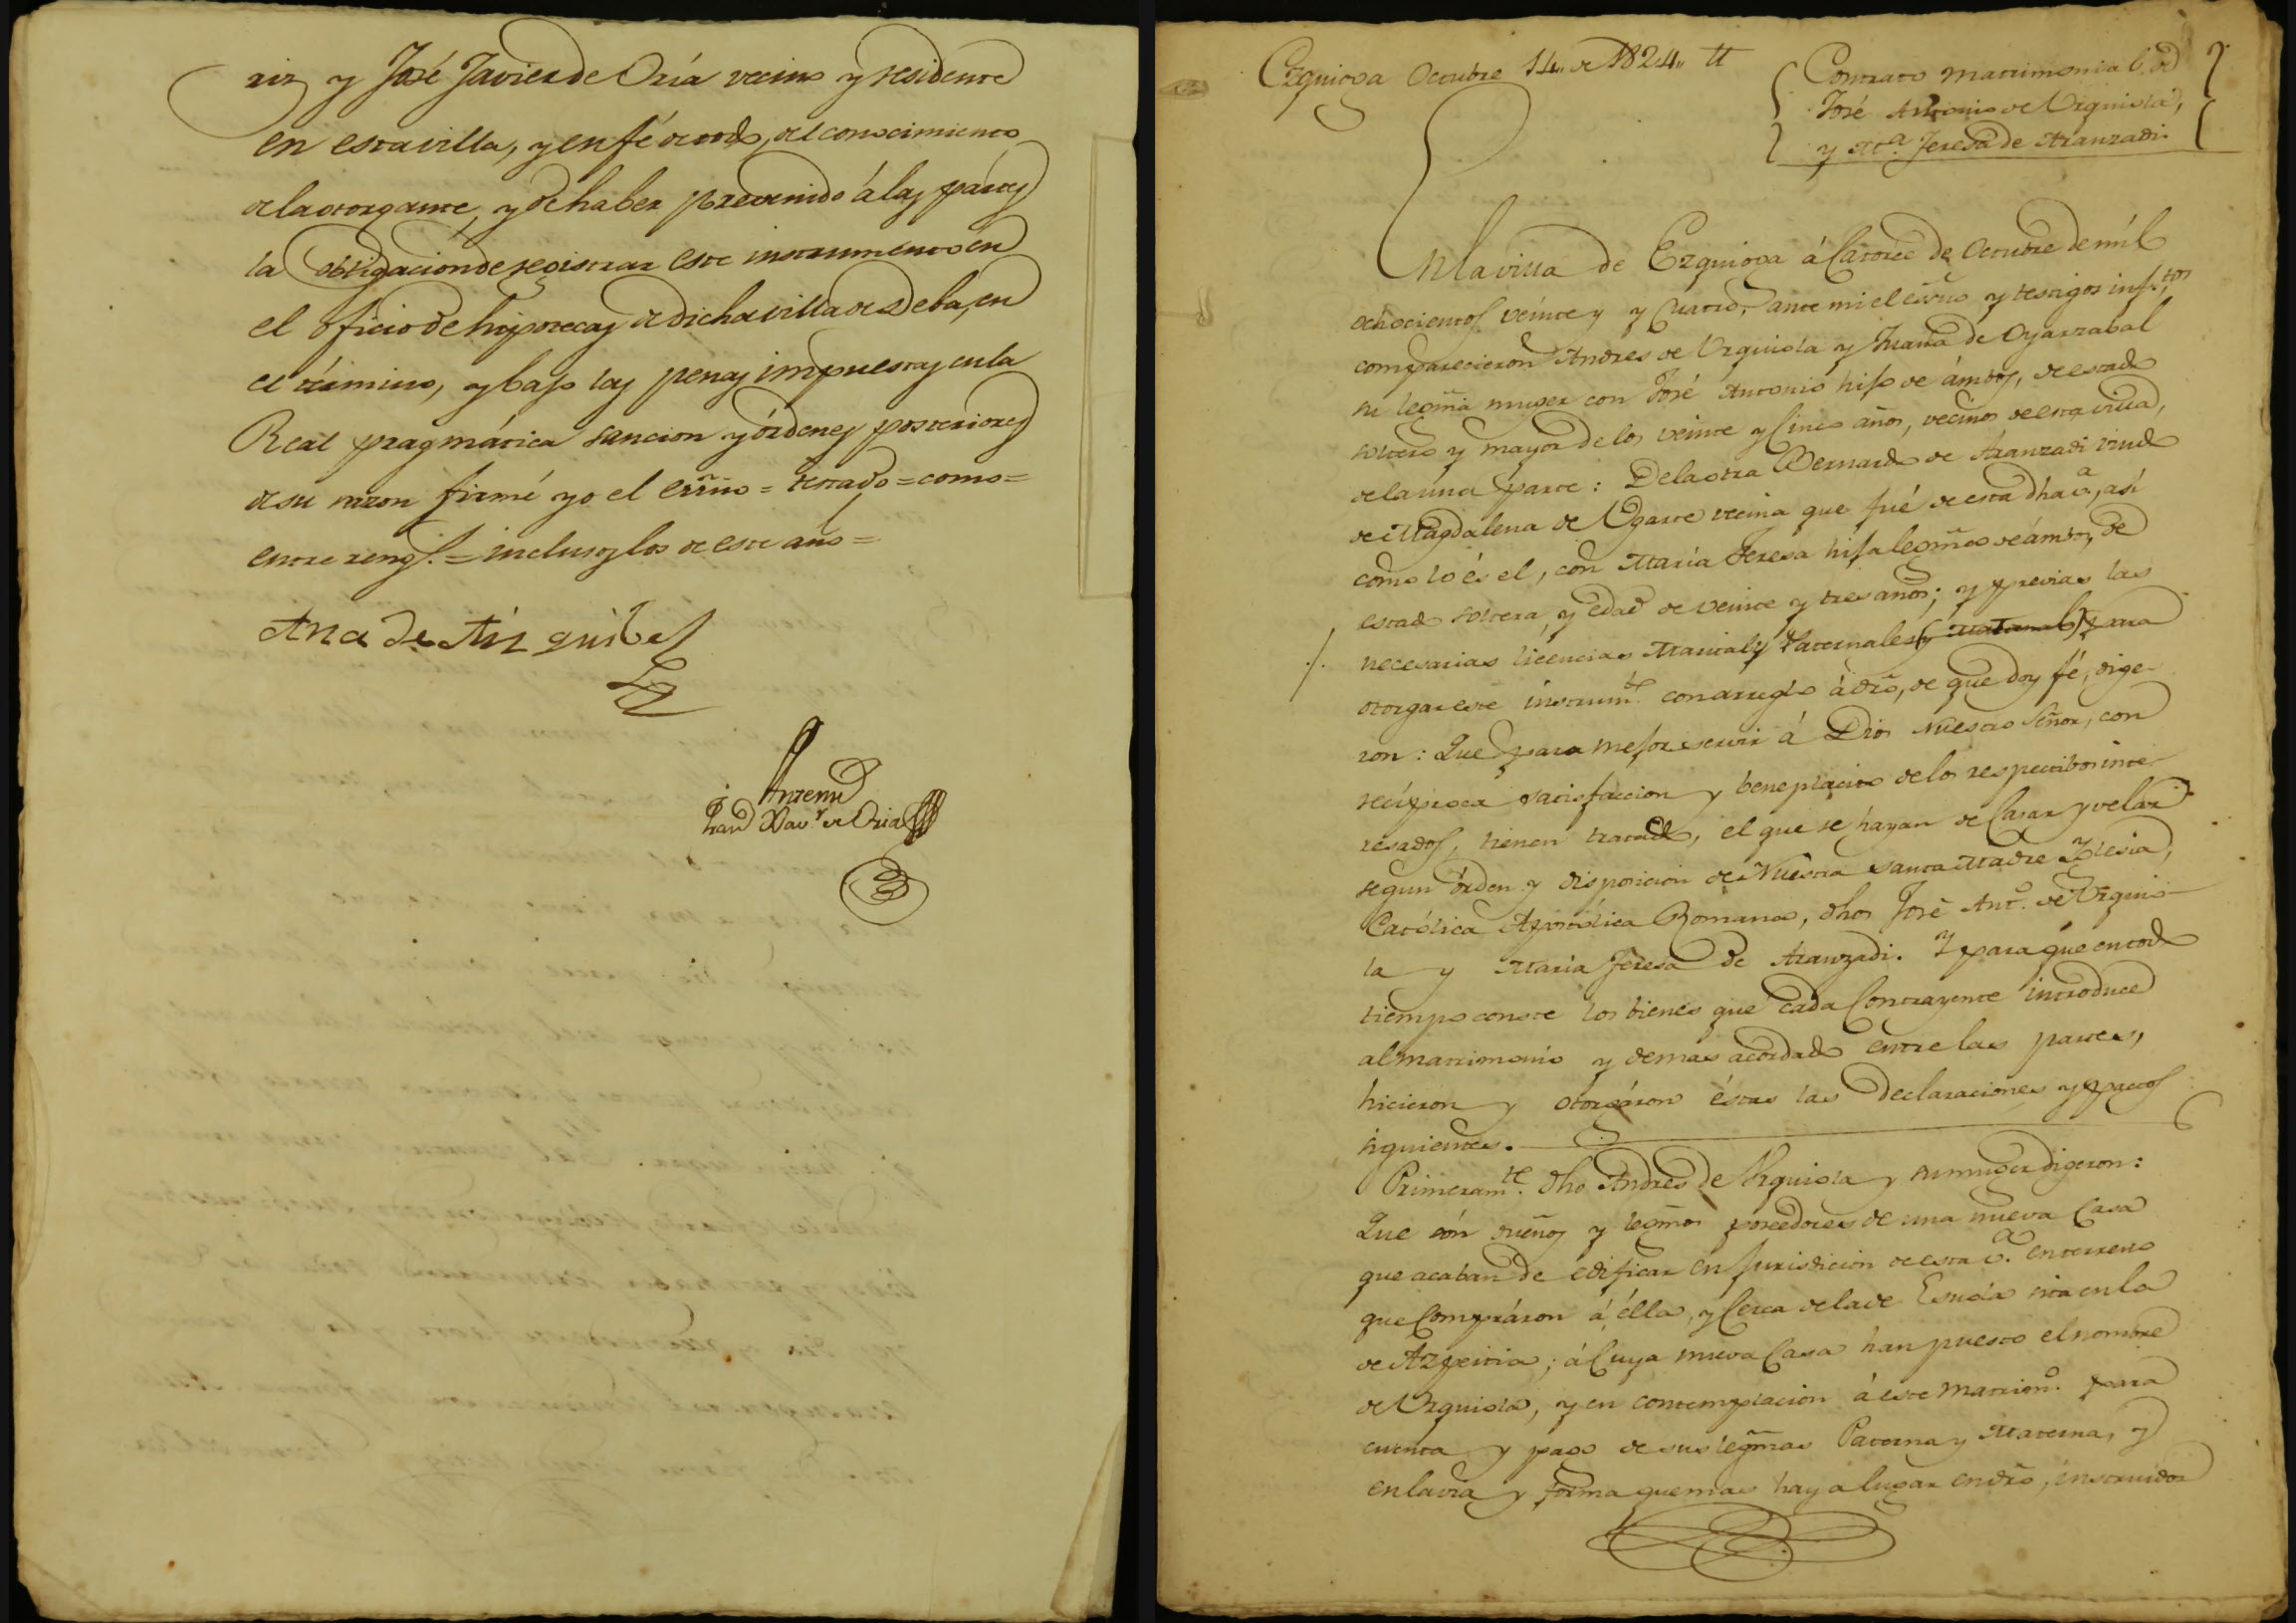 riz y José Javier de Oria vecino y residente
en esta villa, y en fé de todo, del conocimiento
de la otorgante, y de haber prevenido á las partes
la obligacion de registrar este instrumento en
el oficio de hipotecas de dicha villa de Deba, en
el término, y bajo las penas impuestas en la
Real pragmática sancion y órdenes posteriores
de su razon firmé yo el essño = testado = como =
entre rengs. = inclusos los de este año =
Ana de Aizquibel
Antemi
Juan Xavr. de Oria
Ezquioga Octubre 14,, de 1824,,
Contrato matrimonial de
José Antonio de Urquiola,
y Ma. Teresa de Aranzadi.
En la villa de Ezquioga á Catorce de Octubre de mil
ochocientos veinte y y Cuatro, ante mi el essño y testigos infstos
comparecieron Andres de Urquiola y Juana de Oyarzabal
su legma muger con José Antonio hijo de ámbos, de estado
soltero y mayor de los veinte y Cinco años, vecinos de esta villa,
de la una parte: De la otra Bernardo de Aranzadi viudo
de Magdalena de Ugarte vecina que fué de esta dha va, así
como lo és el, con Maria Teresa hija legma de ámbos, de
estado soltera, y edad de veinte y tres años; y previas las
necesarias licencias Marital y Paternales (y maternal) para
otorgar este instrumto. con arreglo á dro, de que doy fé, dige-
ron: Que para mejor servir á Dios Nuestro Señor, con
recíproca satisfaccion y beneplacito de los respectibos inte-
resados, tienen tratado, el que se hayan de Casar y velar
segun órden y disposicion de Nuestra Santa Madre Yglesia,
Católica Apostólica Romana, dhos José Anto. de Urquio-
la y Maria Teresa de Aranzadi. Y para que en todo
tiempo conste los bienes que cada Contrayente introduce
al matrimonio y demas acordado entre las partes,
hicieron y otorgáron éstas las declaraciones y pactos
siguientes.
Primeramte. dho Andres de Urquiola y su muger digeron:
Que són dueños y legmos poseedores de una nueva Casa
que acaban de edificar en Jurisdicion de esta va. en terreno
que Compráron á élla, y Cerca de la de sita en la
de Azpeitia; á Cuya nueva Casa han puesto el nombre
de Urquiola, y en contemplacion á este matrimo. para
cuenta y pago de sus legmas Paterna y Materna, y
en la via y forma que mas haya lugar en dro, instruidos